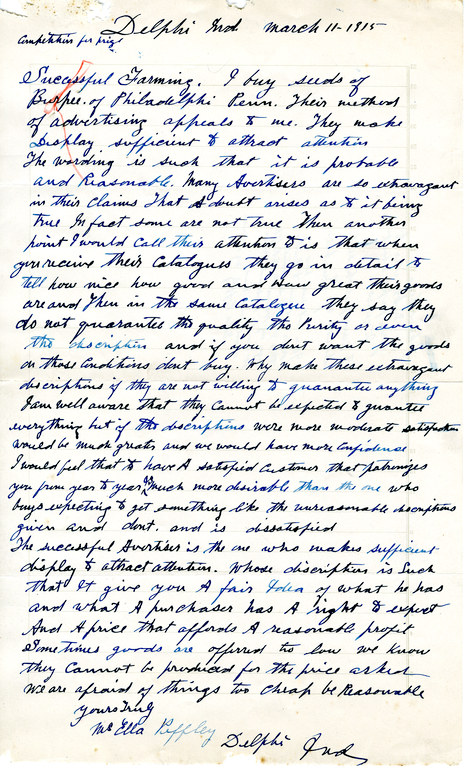 Delphi Ind March 11-1915
Competition for prize
Successful Farming. I buy seeds of
Burpee. of Philadelphi Penn. Their method
of advertising appeals to me. They make
Display sufficient to attract attention
The wording is such that it is probable
and Reasonable. Many Avertisers are so extravagant
in their claims That A doubt arises as to it being
true In fact some are not true Then another
point I would call their attention to is that when
you receive their Catalogues they go in detail to
tell how nice how good and how great their goods
are and Then in the same Catalogue they say they
do not guarantee the quality the Purity or even
the discription and if you dont want the goods
on those Conditions dont buy. Why make these extravagant
discriptions if they are not willing to guanantee anything
I am well aware that they Cannot be expected to guantee
everything but if the discriptions were more moderate satisfaction
would be much greater and we would have more Confidence
I would feel that to have A satisfied Customer that patronizes
you from year to year is much more desirable than the one who
buys expecting to get something like the unreasonable discriptions
given and dont. and is dissatisfied
The successful Avertiser is the one who makes sufficient
display to attract attention. Whose discription is Such
that It give you A fair Idea of what he has
and what A purchaser has A right to expect
And A price that affords A reasonable profit
Sometimes goods are offerred to low we know
they Cannot be produced for the price asked
We are afraid of things too cheap be Reasonable
yours Truly
Mrs Ella Peffley
Delphi Ind